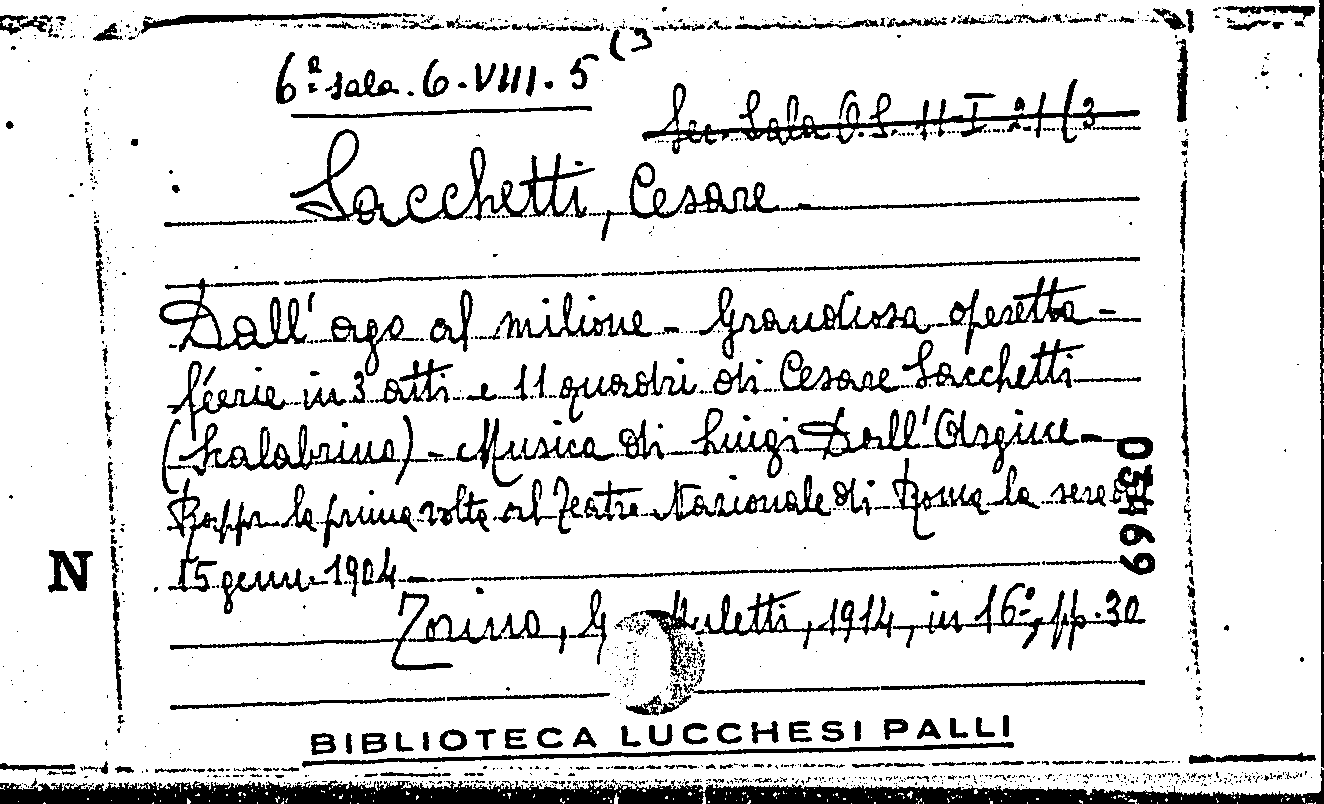 6ª sala. 6. VIII. 5 (3
Sec. Sala O.S. 11-I 21 (3
Sacchetti, Cesare -
Dall'ago al milione - Grandiosa operetta -
féerie in 3 atti e 11 quadri di Cesare Sacchetti
(Scalabrino) - Musica di Luigi Dall'Argine -
Rappr. la prima volta al Teatro Nazionale di Roma la sera del
15 genn. 1904 -
Torino, G. letti, 1914, in 16º, pp. 30
BIBLIOTECA LUCCHESI PALLI
N
03469